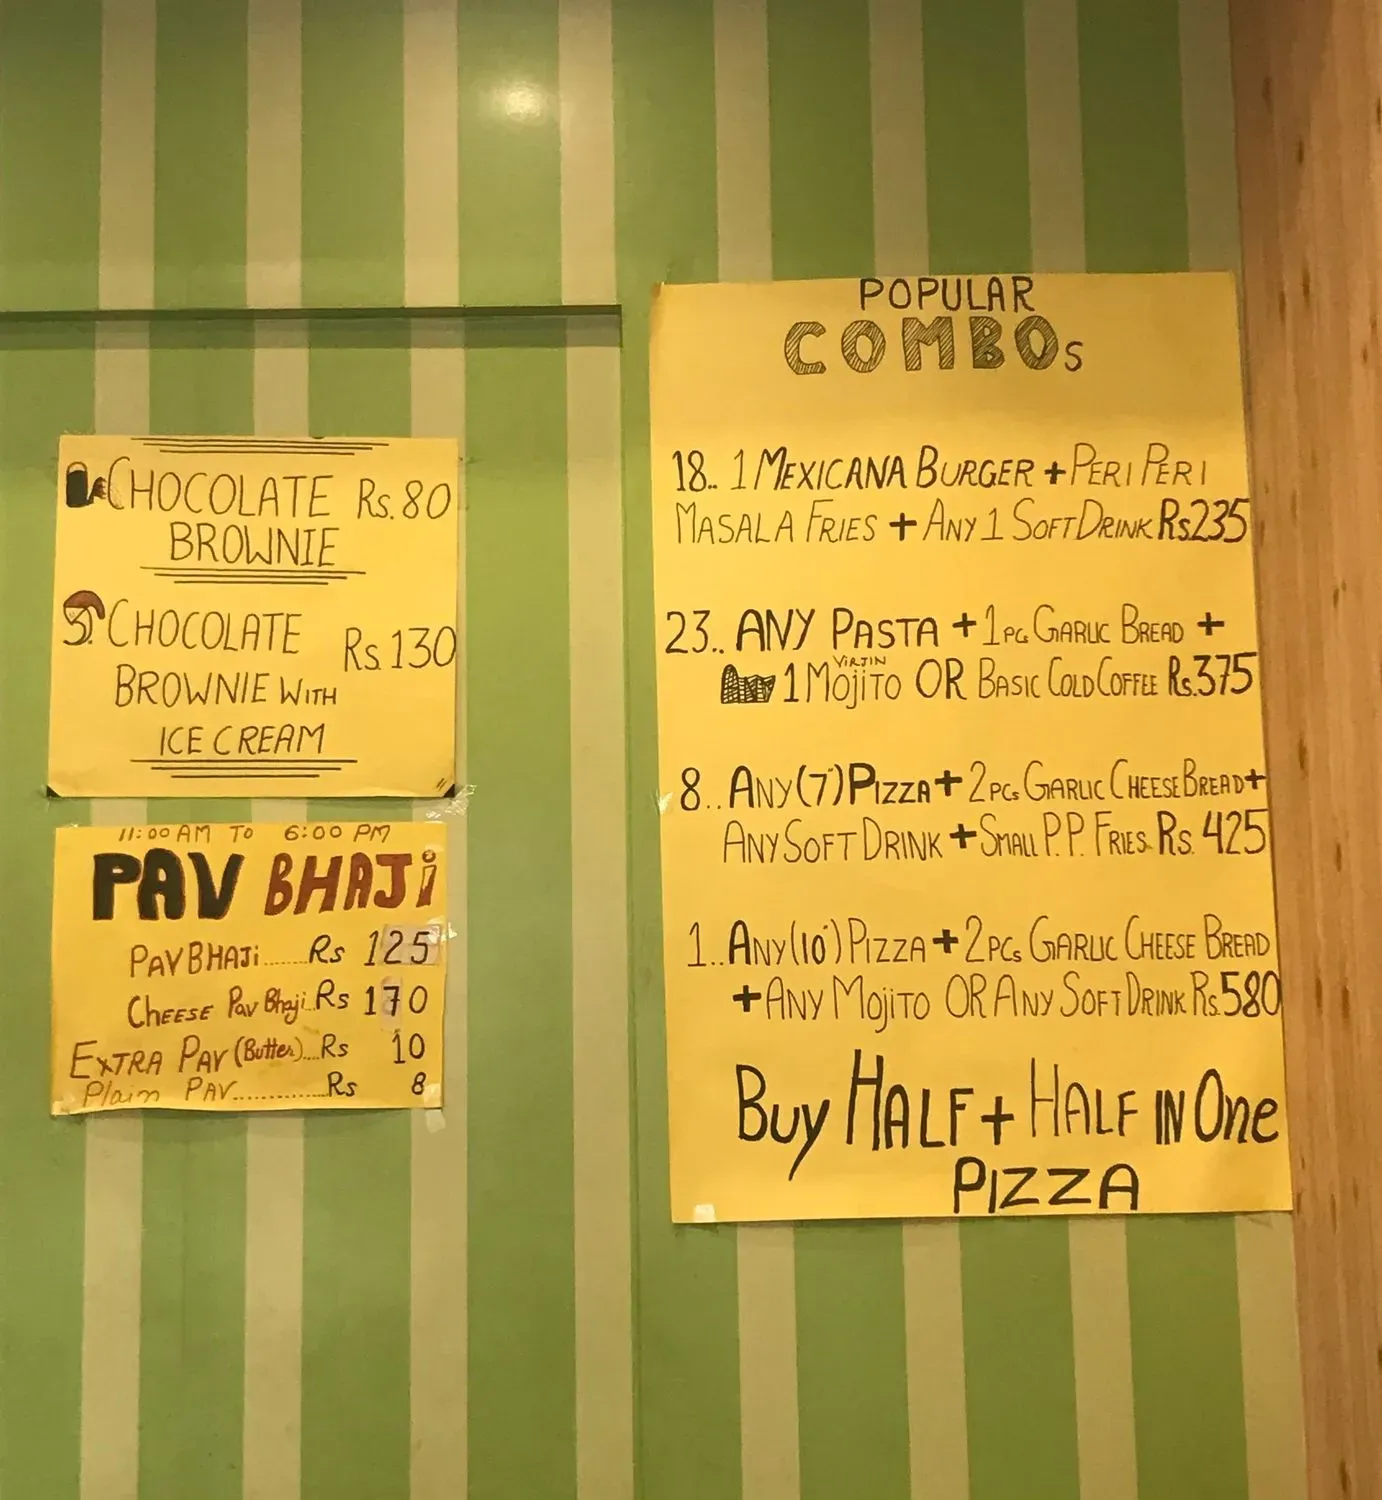 CHOCOLATE Rs. 80
BROWNIE
CHOCOLATE Rs. 130
BROWNIE WITH
ICE CREAM
11:00 AM TO 6:00 PM
PAV BHAJi
PAV BHAJi........Rs 125
CHEESE Pav Bhaji..Rs 170
EXTRA PAV (Butter)....Rs 10
Plain PAV..............Rs 8
POPULAR
COMBOs
18.. 1 MEXICANA BURGER + PERI PERI
MASALA FRIES + ANY 1 SOFT DRINK Rs 235
23.. ANY PASTA + 1 PC GARLIC BREAD +
1 VIRJIN MOjiTO OR BASIC COLD COFFEE Rs. 375
8.. ANY (7") PIZZA + 2 PCs GARLIC CHEESE BREAD +
ANY SOFT DRINK + SMALL P.P. FRIES Rs. 425
1.. ANY (10") PIZZA + 2 PCs GARLIC CHEESE BREAD
+ ANY MOjiTO OR ANY SOFT DRINK Rs. 580
Buy HALF + HALF IN One
PIZZA